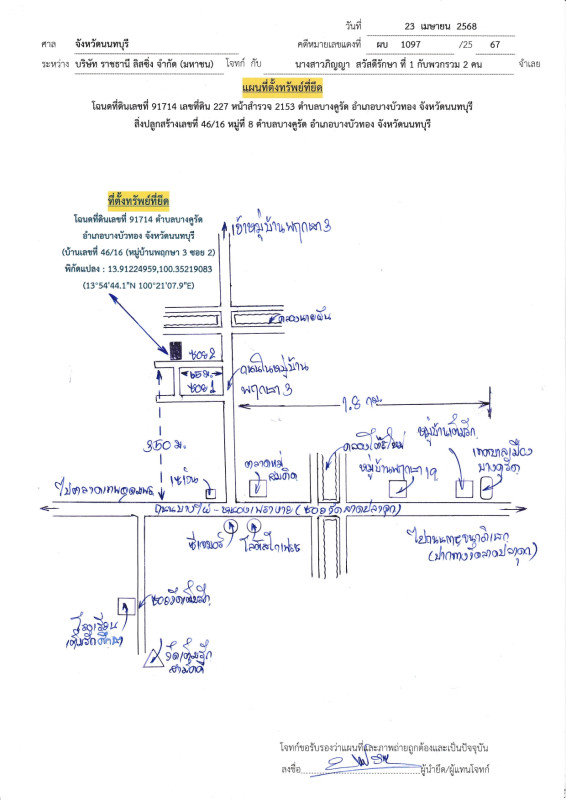 วันที่ 23 เมษายน 2568
ศาล จังหวัดนนทบุรี คดีหมายเลขแดงที่ ผบ 1097 /25 67
ระหว่าง บริษัท ราชธานี ลิสซิ่ง จำกัด (มหาชน) โจทก์ กับ นางสาวภิญญา สวัสดีรักษา ที่ 1 กับพวกรวม 2 คน จำเลย
แผนที่ตั้งทรัพย์ที่ยึด
โฉนดที่ดินเลขที่ 91714 เลขที่ดิน 227 หน้าสำรวจ 2153 ตำบลบางคูรัด อำเภอบางบัวทอง จังหวัดนนทบุรี
สิ่งปลูกสร้างเลขที่ 46/16 หมู่ที่ 8 ตำบลบางคูรัด อำเภอบางบัวทอง จังหวัดนนทบุรี
ที่ตั้งทรัพย์ที่ยึด
โฉนดที่ดินเลขที่ 91714 ตำบลบางคูรัด
อำเภอบางบัวทอง จังหวัดนนทบุรี
(บ้านเลขที่ 46/16 (หมู่บ้านพฤกษา 3 ซอย 2)
พิกัดแปลง : 13.91224959,100.35219083
(13°54'44.1"N 100°21'07.9"E)
เข้าหมู่บ้านพฤกษา 3
ซอย 2
ซอย 1
ถนนในหมู่บ้าน
พฤกษา 3
1.8 กม.
350 ม.
หมู่บ้านพฤกษา 19
เทศบาลเมือง
บางคูรัด
ตลาดหมู่
สมคิด
โลตัสโกเฟรช
โรงเรียน
โจทก์ขอรับรองว่าแผนที่และภาพถ่ายถูกต้องและเป็นปัจจุบัน
ลงชื่อ ผู้นำยึด/ผู้แทนโจทก์